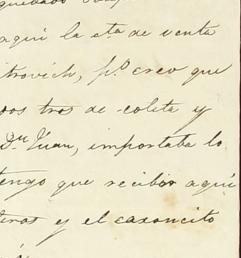 quedado
aquí la cta de venta
itrovich, pº creo que
dos tres de coleta y
Dn Juan, importaba lo
tengo que recibir aquí
tiras es el caxoncito